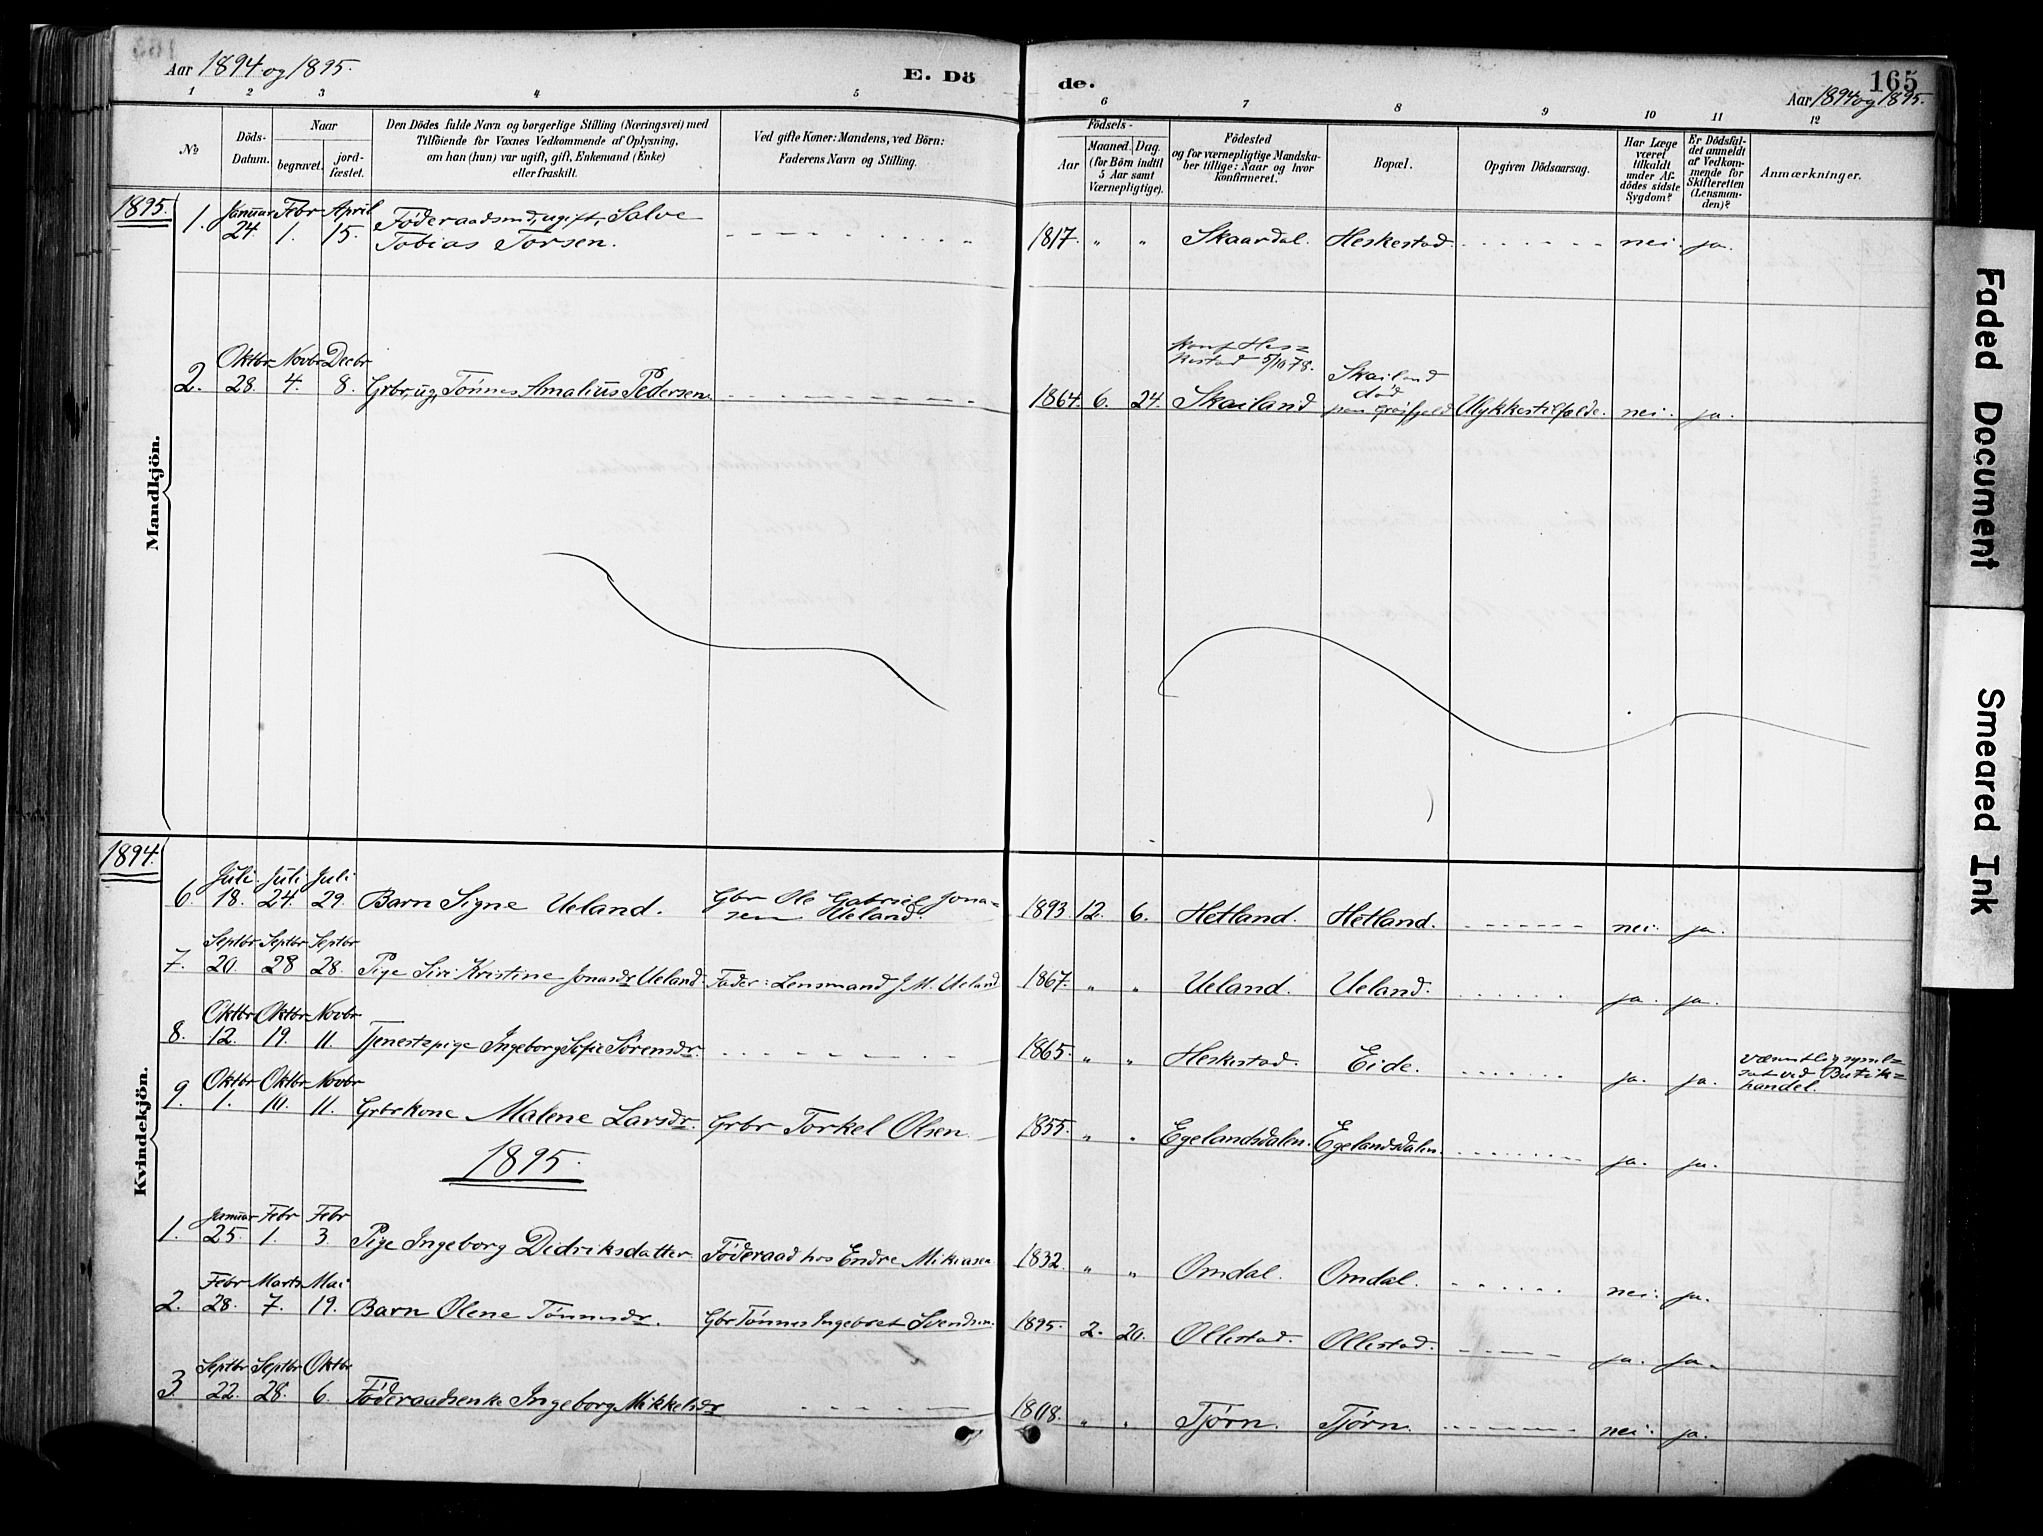 Aar 1894 og 1895.
E. Dö
de.
165
Aar 1894 og 1895.
1 2 3 4 5 6 7 8 9 10 11 12
No
Döds-
Datum.
Naar
begravet.
jord-
fæstet.
Den Dödes fulde Navn og borgerlige Stilling (Næringsvei) med
Tilföiende for Voxnes Vedkommende af Oplysning,
om han (hun) var ugift, gift, Enkemand (Enke)
eller fraskilt.
Ved gifte Koner: Mandens, ved Börn:
Faderens Navn og Stilling.
Födsels-
Aar
Maaned. Dag.
(for Börn indtil
5 Aar samt
Værnepligtige).
Födested
og for værnepligtige Mandska-
ber tillige: Naar og hvor
konfirmeret.
Bopæl.
Opgiven Dödsaarsag.
Har Læge
været
tilkaldt
under Af-
dödes sidste
Sygdom?
Er Dödsfal-
det anmeldt
af Vedkom-
mende for
Skifteretten
(Lensman-
den)?
Anmærkninger.
1895.
Mandkjön.
Januar Febr April
1. 24. 1. 15. Föderaadsmd, ugift, Salve
Tobias Torsen. 1817. " " Skaardal. Heskestad. nei. ja.
Oktbr Novbr Decbr
konf. Hes=
kestad 5/10 78.
Skailand
död
2. 28. 4. 8. Grbr, ug, Tönnes Amalius Pedersen. 1864. 6. 24. Skailand Ulykkestilfælde. nei. ja.
1894.
Kvindekjön.
Juli Juli Juli
6. 18. 24. 29. Barn Signe Ueland. Gbr Ole Gabriel Jona=
sen Ueland. 1893 12. 6. Hetland. Hetland. nei. ja.
Septbr Septbr Septbr
7. 20. 28 28. Pige Siri Kristine Jonasdr Ueland. Fader: Lensmand J. M. Ueland 1867. " " Ueland. Ueland. ja. ja.
Oktbr Oktbr Novbr
8. 12. 19. 11. Tjenestepige Ingeborg Sofie Sörensdr. 1865. " " Heskestad. Eide. ja. ja.
sat ved Butik=
handel.
Oktbr Oktbr Novbr
9. 1. 10. 11. Grbrkone Malene Larsdr. Grbr Torkel Olsen. 1855. " " Egelandsdalen. Egelandsdalen. ja. ja.
1895.
Januar Febr Febr
1. 25. 1. 3. Pige Ingeborg Didriksdatter. Föderaad hos Endre Mikiasen. 1832. " " Omdal. Omdal. nei. ja.
Febr Marts Mai
2. 28. 7. 19. Barn Olene Tönnesdr. Gbr Tönnes Ingebret Svendsen. 1895. 2. 20. Ollestad. Ollestad. ja. ja.
Septbr Septbr Oktbr
3. 22. 28. 6. Föderaadsenke Ingeborg Mikkelsdr 1808. " " Tjörn. Tjörn. nei. ja.
Faded Document
Smeared Ink